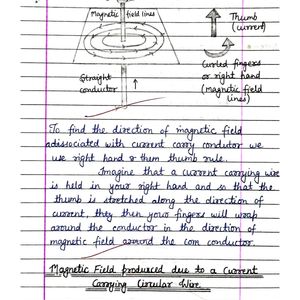 Magnetic field lines
Thumb
(current)
Curled fingers
or right hand
(Magnetic field
lines)
Straight
conductor
To find the direction of magnetic field
adissociated with current carry condutor we
use right hand & them thumb rule.
Imagine that a current carrying wire
is held in your right hand and so that the
thumb is stretched along the direction of
current, they then your fingers will wrap
around the conductor in the direction of
magnetic field around the com conductor.
Magnetic Field produced due to a Current
Carrying Circular Wire